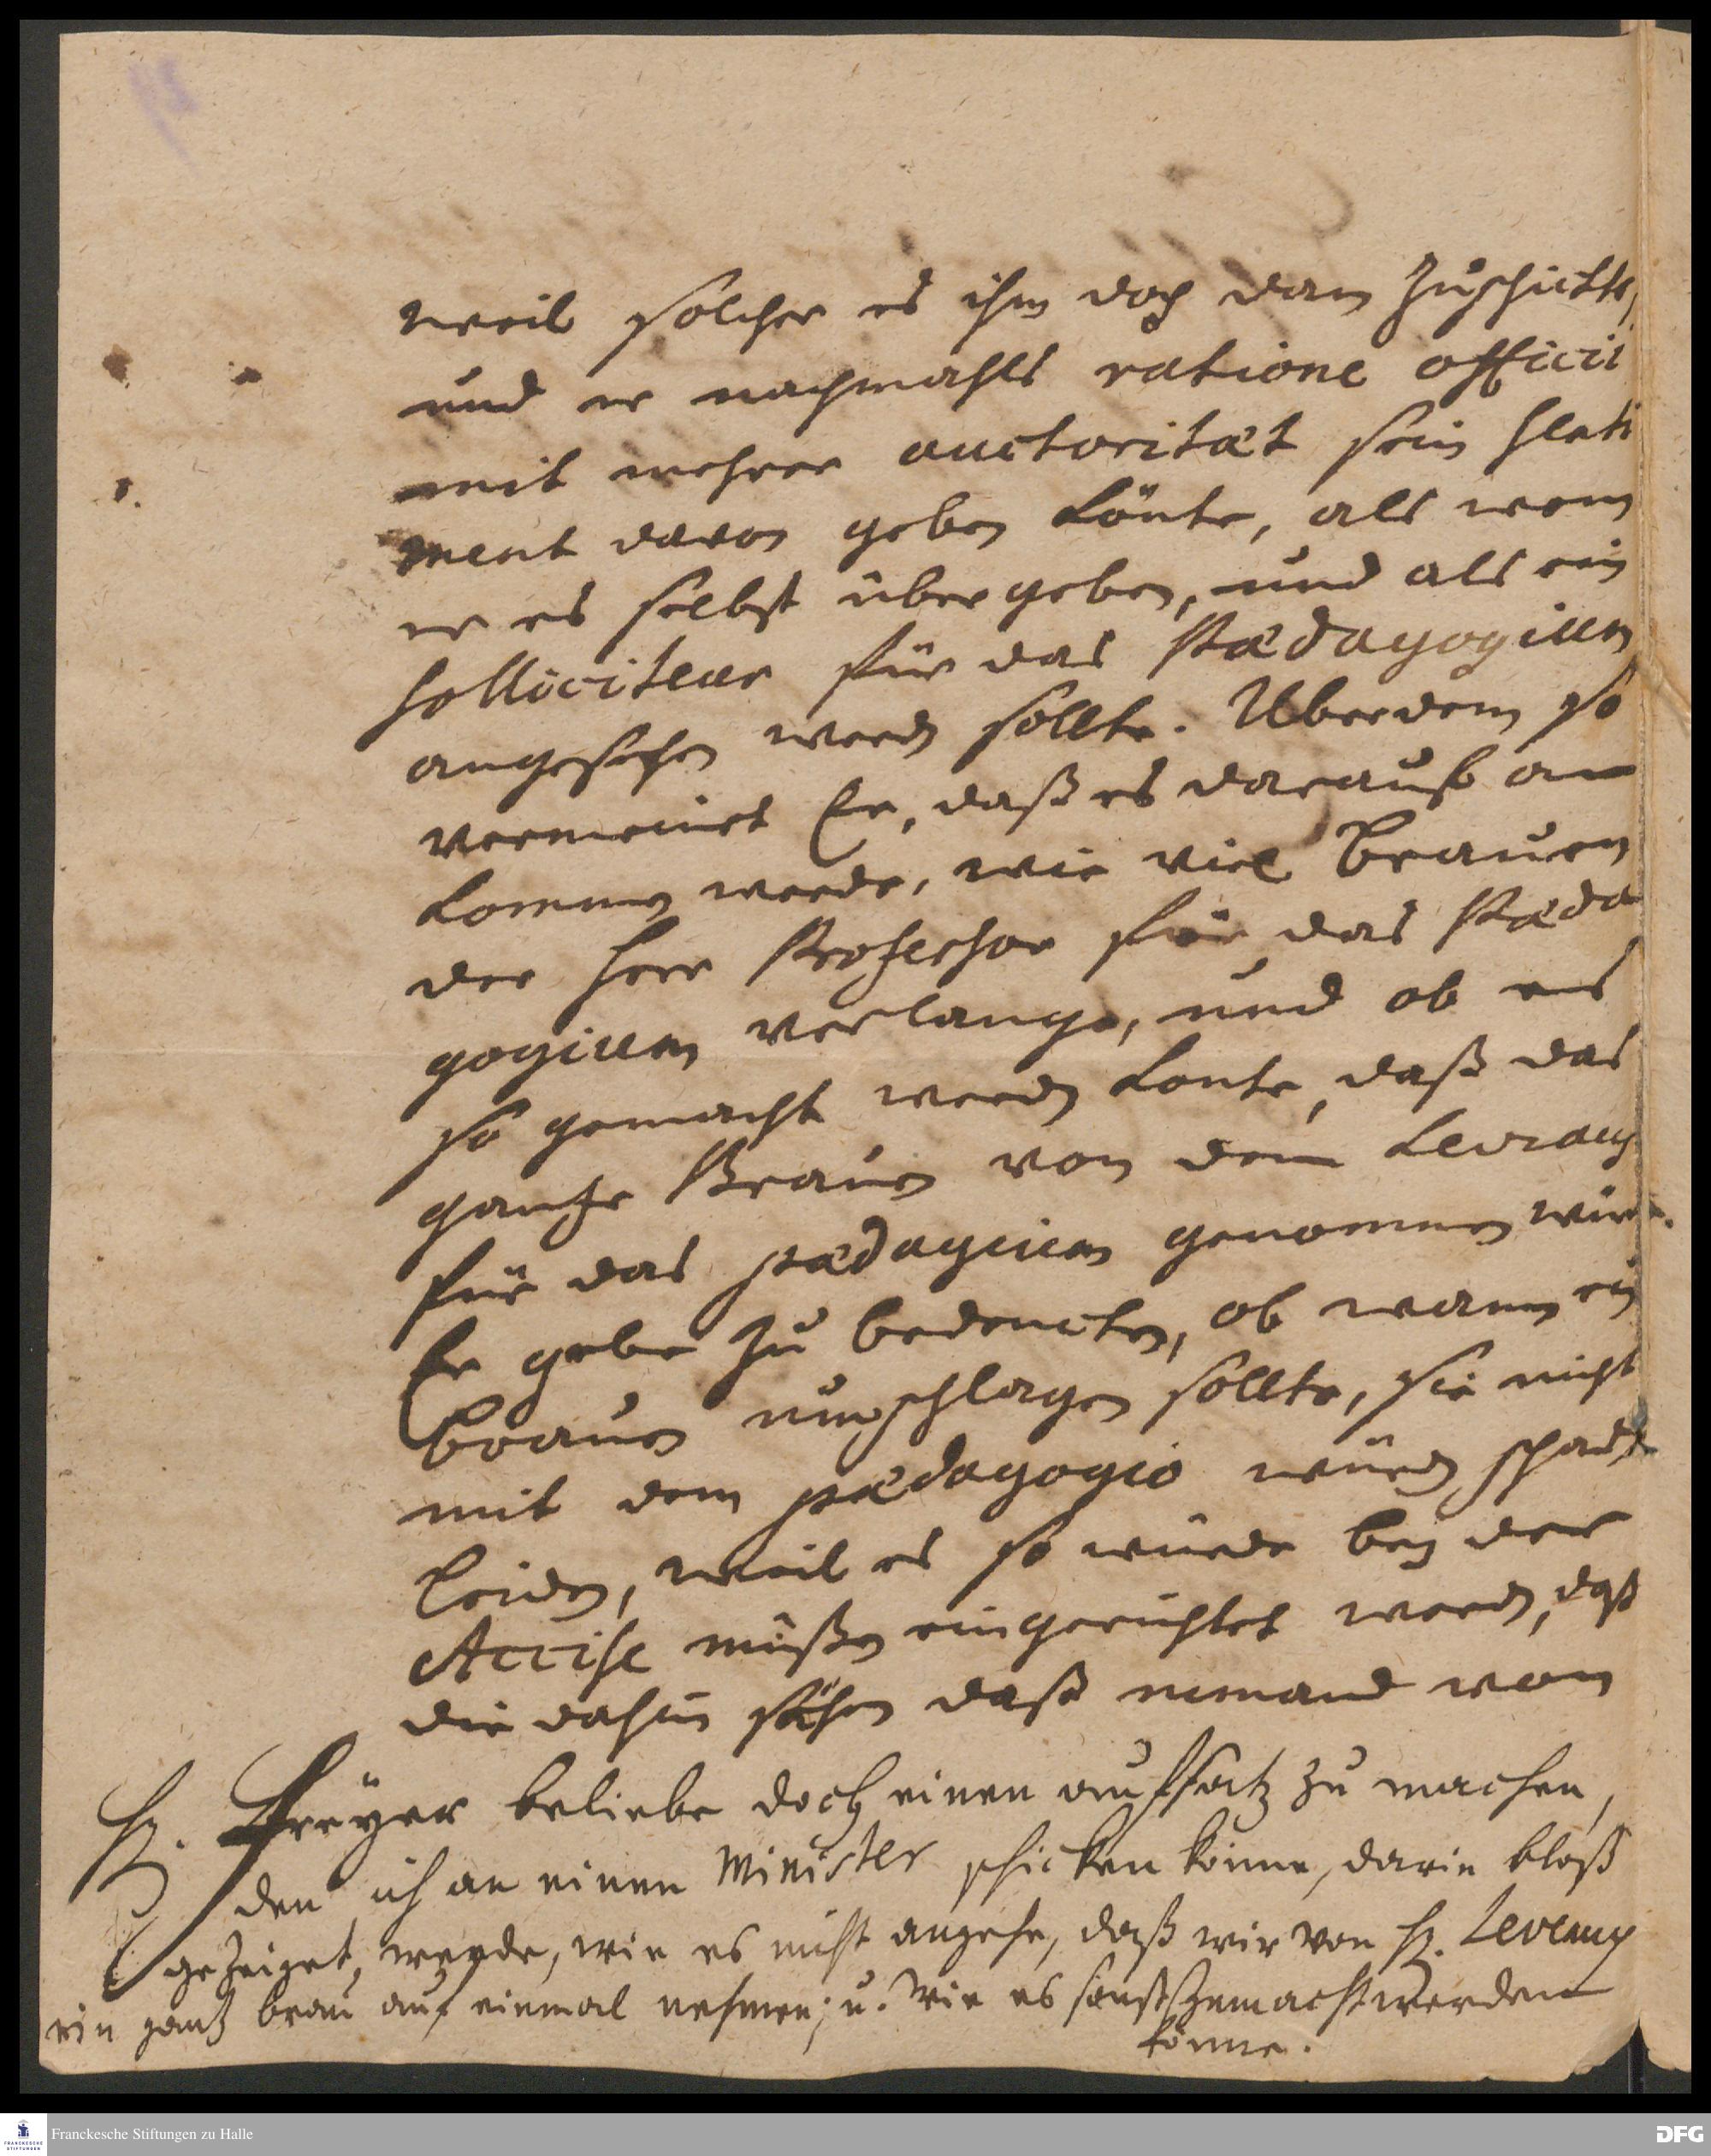 weil solcher es ihm doch dann zuschickte,
und er nachmahls ratione officii
mit mehrer auctoritæt sein senti
ment davon geben könte, als wenn
er es selbst übergeben, und als ein
Solliciteur für das Pædagogium
angesehen werden sollte. Uberdem so
vermeinet Er, daß es darauf an
kommen werde, wie viel Brauen
der Herr Professor für das Pæda
gogium verlange, und ob es
so gemacht werden konte, daß das
gantze Brauen von dem Leveaux
für das pædagium genommen würde.
Er gebe zu bedencken, ob wann ein
Brauen umschlagen sollte, sie nicht
mit dem pædagogio würden schaden
leiden, weil es so würde bey der
Accise müßen eingerichtet werden, daß
die dahin sähen daß niemand von
H. Freyer beliebe doch einen aufsatz zu machen,
den ich an einen Minister schicken könne, darin bloß
gezeiget werde, wie es nicht angehe, daß wir von H. Leveaux
ein gantz brau auf einmal nehmen; u. wie es sonst gemacht werden
könne.
Franckesche Stiftungen zu Halle
DFG